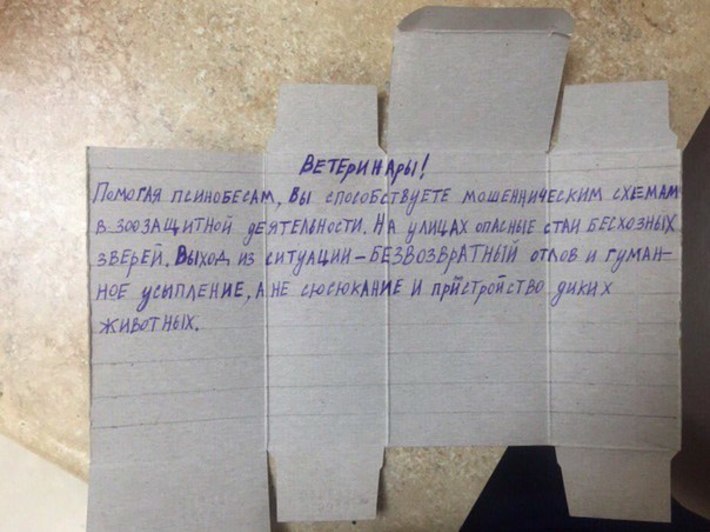 ВЕТЕРИНАРЫ!
ПОМОГАЯ ПСИНОБЕСАМ, ВЫ СПОСОБСТВУЕТЕ МОШЕННИЧЕСКИМ СХЕМАМ
В ЗООЗАЩИТНОЙ ДЕЯТЕЛЬНОСТИ. НА УЛИЦАХ ОПАСНЫЕ СТАИ БЕСХОЗНЫХ
ЗВЕРЕЙ. ВЫХОД ИЗ СИТУАЦИИ – БЕЗВОЗВРАТНЫЙ ОТЛОВ И ГУМАН-
НОЕ УСЫПЛЕНИЕ, А НЕ СЮСЮКАНИЕ И ПРИСТРОЙСТВО ДИКИХ
ЖИВОТНЫХ.